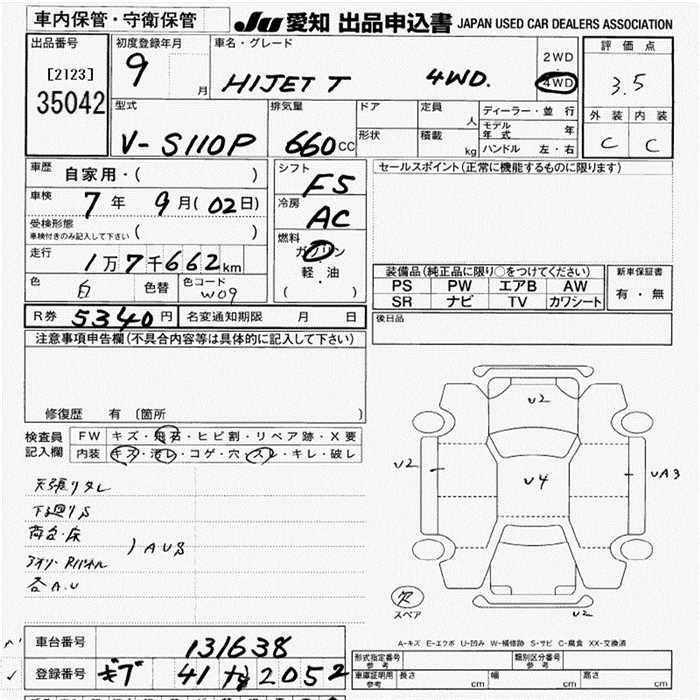 車内保管・守衛保管
JU 愛知 出品申込書 JAPAN USED CAR DEALERS ASSOCIATION
出品番号
[2123]
35042
初度登録年月
9
月
車名・グレード
HIJET T 4WD.
2WD
・
4WD
評価点
3.5
外装 内装
C C
型式
V-S110P
排気量
660 CC
ドア
形状
定員
人
積載
kg
ディーラー・並行
モデル年式 年
ハンドル 左・右
車歴
自家用・( )
車検
7年 9月(02日)
受検形態
車検付きのみ記入して下さい ( )
走行
1万7千662km
色
白
色替
色コード
W09
シフト
F5
冷房
AC
燃料
ガソリン
軽・油
( )
セールスポイント(正常に機能するものに限ります)
装備品(純正品に限り○をつけてください)
PS PW エアB AW
SR ナビ TV カワシート
新車保証書
有・無
後日品
R券 5340円
名変通知期限 月 日
注意事項申告欄(不具合内容等は具体的に記入して下さい)
修復歴 有 〔箇所 〕
検査員
記入欄
FW キズ・飛石・ヒビ割・リペア跡・X要
内装 キズ・汚レ・コゲ・穴・スレ・キレ・破レ
天張りタレ
下廻りS
荷台・床
アオリ・Rパネル
) AUS
各A.U
U2
U2
U4
UA3
U2
欠
スペア
A-キズ E-エクボ U-凹み W-補修跡 S-サビ C-腐食 XX-交換済
車台番号
131638
登録番号
41 2052
形式指定番号
参考
類別区分番号
参考
車庫証明用
参考
長さ cm
幅 cm
高さ cm